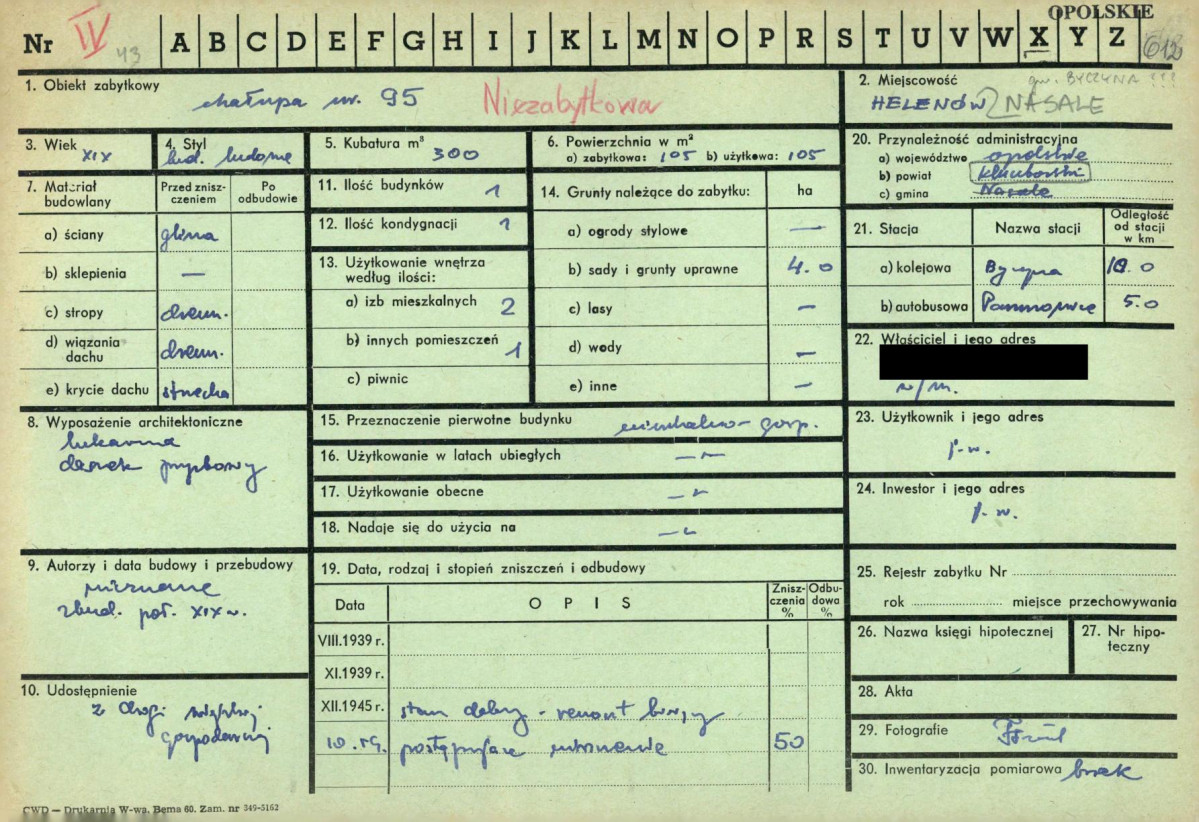 OPOLSKIE
Nr IV 43 A B C D E F G H I J K L M N O P R S T U V W X Y Z 612
1. Obiekt zabytkowy
chałupa nr. 95 Niezabytkowa
2. Miejscowość
gm. BYCZYNA !!!
HELENÓW NASALE
3. Wiek XIX
4. Styl bud. ludowe
5. Kubatura m³ 300
6. Powierzchnia w m²
a) zabytkowa: 105 b) użytkowa: 105
20. Przynależność administracyjna
a) województwo opolskie
b) powiat kluczborski
c) gmina Nasale
7. Materiał budowlany
Przed zniszczeniem
Po odbudowie
a) ściany glina
b) sklepienia —
c) stropy drewn.
d) wiązania dachu drewn.
e) krycie dachu strzecha
11. Ilość budynków 1
12. Ilość kondygnacji 1
13. Użytkowanie wnętrza według ilości:
a) izb mieszkalnych 2
b) innych pomieszczeń 1
c) piwnic
14. Grunty należące do zabytku: ha
a) ogrody stylowe —
b) sady i grunty uprawne 4.0
c) lasy —
d) wody —
e) inne —
21. Stacja
Nazwa stacji
Odległość od stacji w km
a) kolejowa Byczyna 10.0
b) autobusowa 5.0
22. Właściciel i jego adres
w/m.
8. Wyposażenie architektoniczne
lukarna
daszek przyzbowy
15. Przeznaczenie pierwotne budynku mieszkalno-gosp.
16. Użytkowanie w latach ubiegłych —"—
17. Użytkowanie obecne —"—
18. Nadaje się do użycia na —"—
23. Użytkownik i jego adres
j.w.
24. Inwestor i jego adres
j.w.
9. Autorzy i data budowy i przebudowy
nieznane
zbud. poł. XIX w.
19. Data, rodzaj i stopień zniszczeń i odbudowy
Data
OPIS
Zniszczenia %
Odbudowa %
VIII.1939 r.
XI.1939 r.
XII.1945 r. stan dobry - remont bieżący
10.59. postępujące zniszczenie 50
25. Rejestr zabytku Nr
rok miejsce przechowywania
26. Nazwa księgi hipotecznej
27. Nr hipoteczny
10. Udostępnienie
z drogi wiejskiej
gospodarczej
28. Akta
29. Fotografie
30. Inwentaryzacja pomiarowa brak
CWD — Drukarnia W-wa, Bema 60. Zam. nr 349-5162